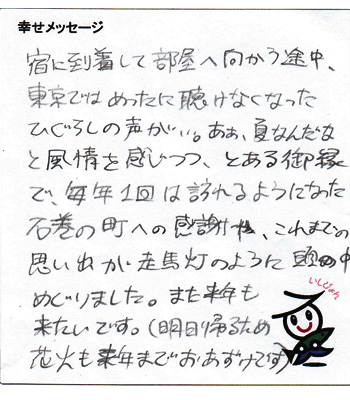 幸せメッセージ
宿に到着して部屋へ向かう途中、
東京ではめったに聴けなくなった
ひぐらしの声が…。あぁ、夏なんだな
と風情を感じつつ、とある御縁
で、毎年1回は訪れるようになった
石巻の町への感謝や、これまでの
思い出が走馬灯のように頭の中
めぐりました。また来年も
来たいです。(明日帰るため
花火も来年までおあずけです)
いしぴょん